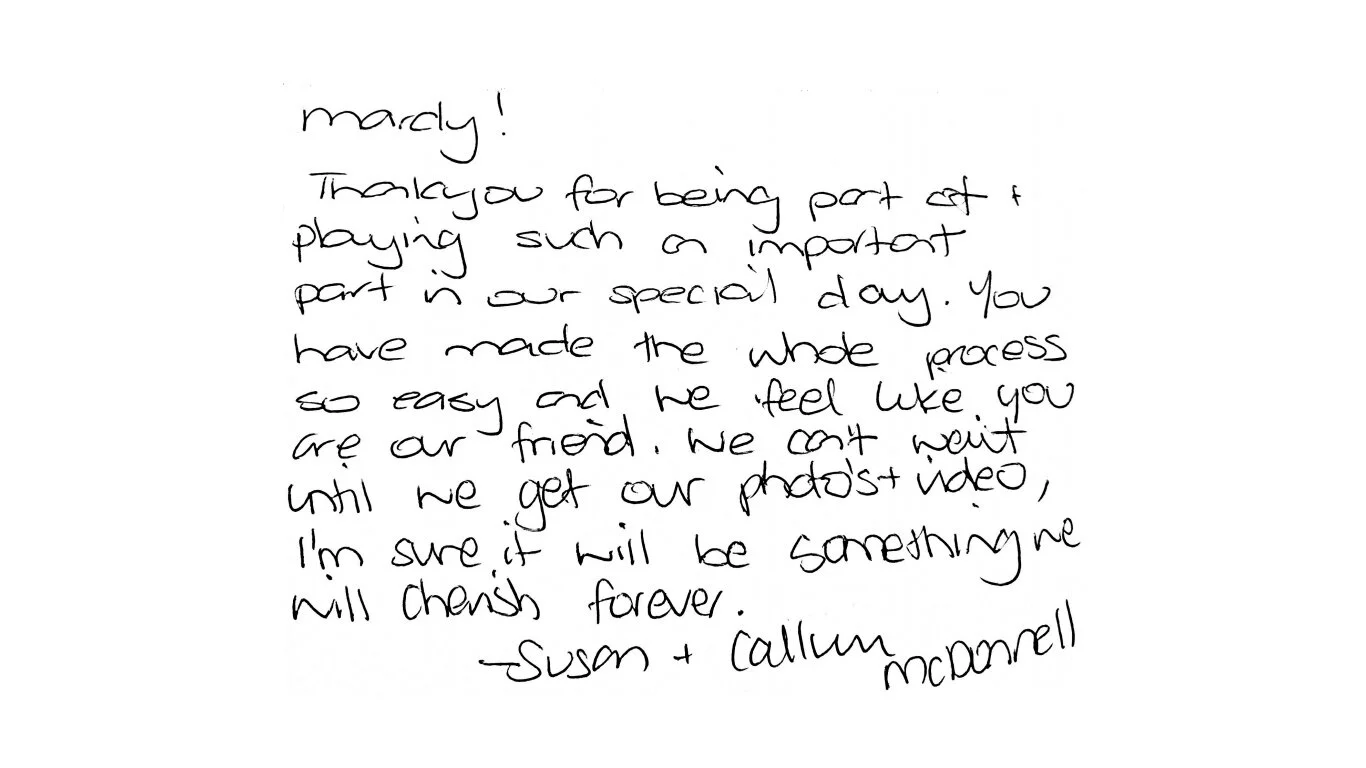 mardy!
Thankyou for being part of +
playing such an important
part in our special day. You
have made the whole process
so easy and we feel like you
are our friend. We can't wait
until we get our photo's + video,
I'm sure it will be something we
will cherish forever.
- Susan + Callum McDonnell